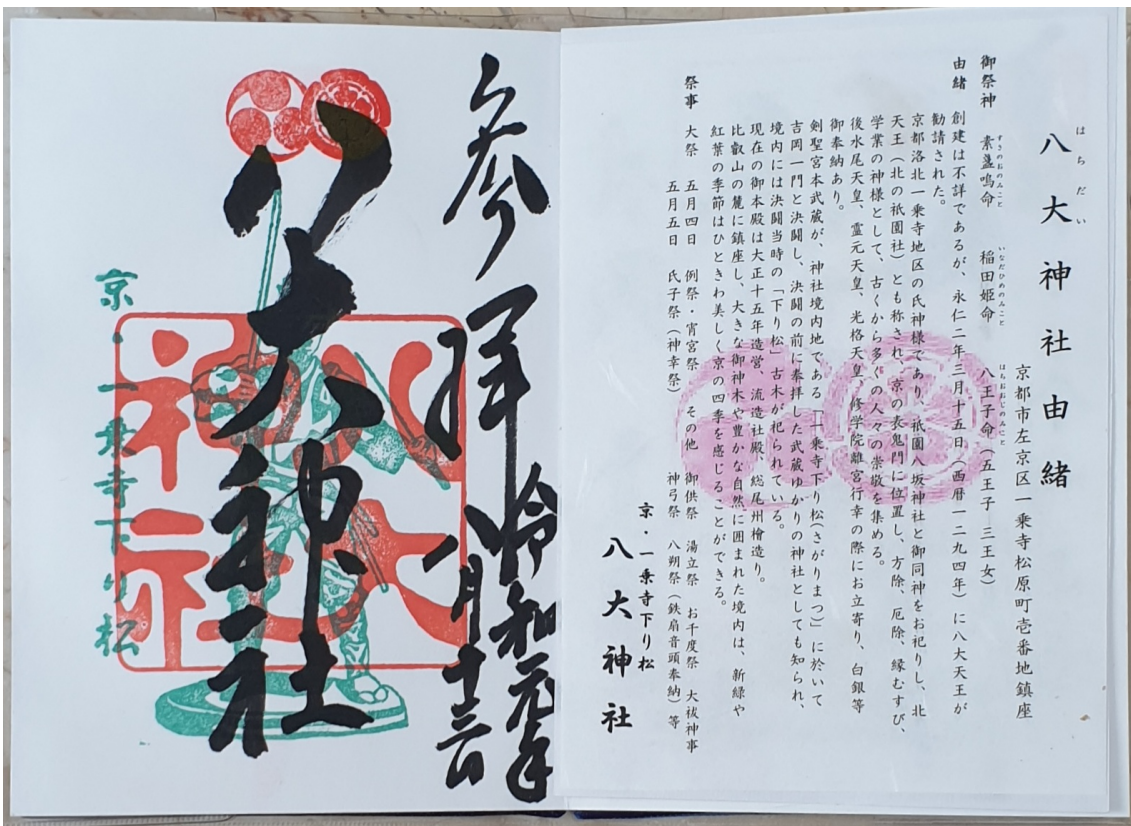 八大神社由緒
はちだい
京都市左京区一乗寺松原町壱番地鎮座
御祭神 素盞嗚命 稲田姫命 八王子命（五王子 三王女）
すさのおのみこと いなだひめのみこと はちおおじのみこと
由緒 創建は不詳であるが、永仁二年三月十五日（西暦一二九四年）に八大天王が
勧請された。
京都洛北一乗寺地区の氏神様であり、祇園八坂神社と御同神をお祀りし、北
天王（北の祇園社）とも称され、京の表鬼門に位置し、方除、厄除、縁むすび、
学業の神様として、古くから多くの人々の崇敬を集める。
後水尾天皇、霊元天皇、光格天皇、修学院離宮行幸の際にお立寄り、白銀等
御奉納あり。
剣聖宮本武蔵が、神社境内地である「一乗寺下り松（さがりまつ）」に於いて
吉岡一門と決闘し、決闘の前に奉拝した武蔵ゆかりの神社としても知られ、
境内には決闘当時の「下り松」古木が祀られている。
現在の御本殿は大正十五年造営、流造社殿、総尾州檜造り。
比叡山の麓に鎮座し、大きな御神木や豊かな自然に囲まれた境内は、新緑や
紅葉の季節はひときわ美しく京の四季を感じることができる。
祭事 大祭 五月四日 例祭・宵宮祭 その他 御供祭 湯立祭 お千度祭 大祓神事
五月五日 氏子祭（神幸祭） 神弓祭 八朔祭（鉄扇音頭奉納）等
京・一乗寺下り松
八大神社
参拝
令和元年
八月十三日
八大神社
八大神社
京・一乗寺下り松